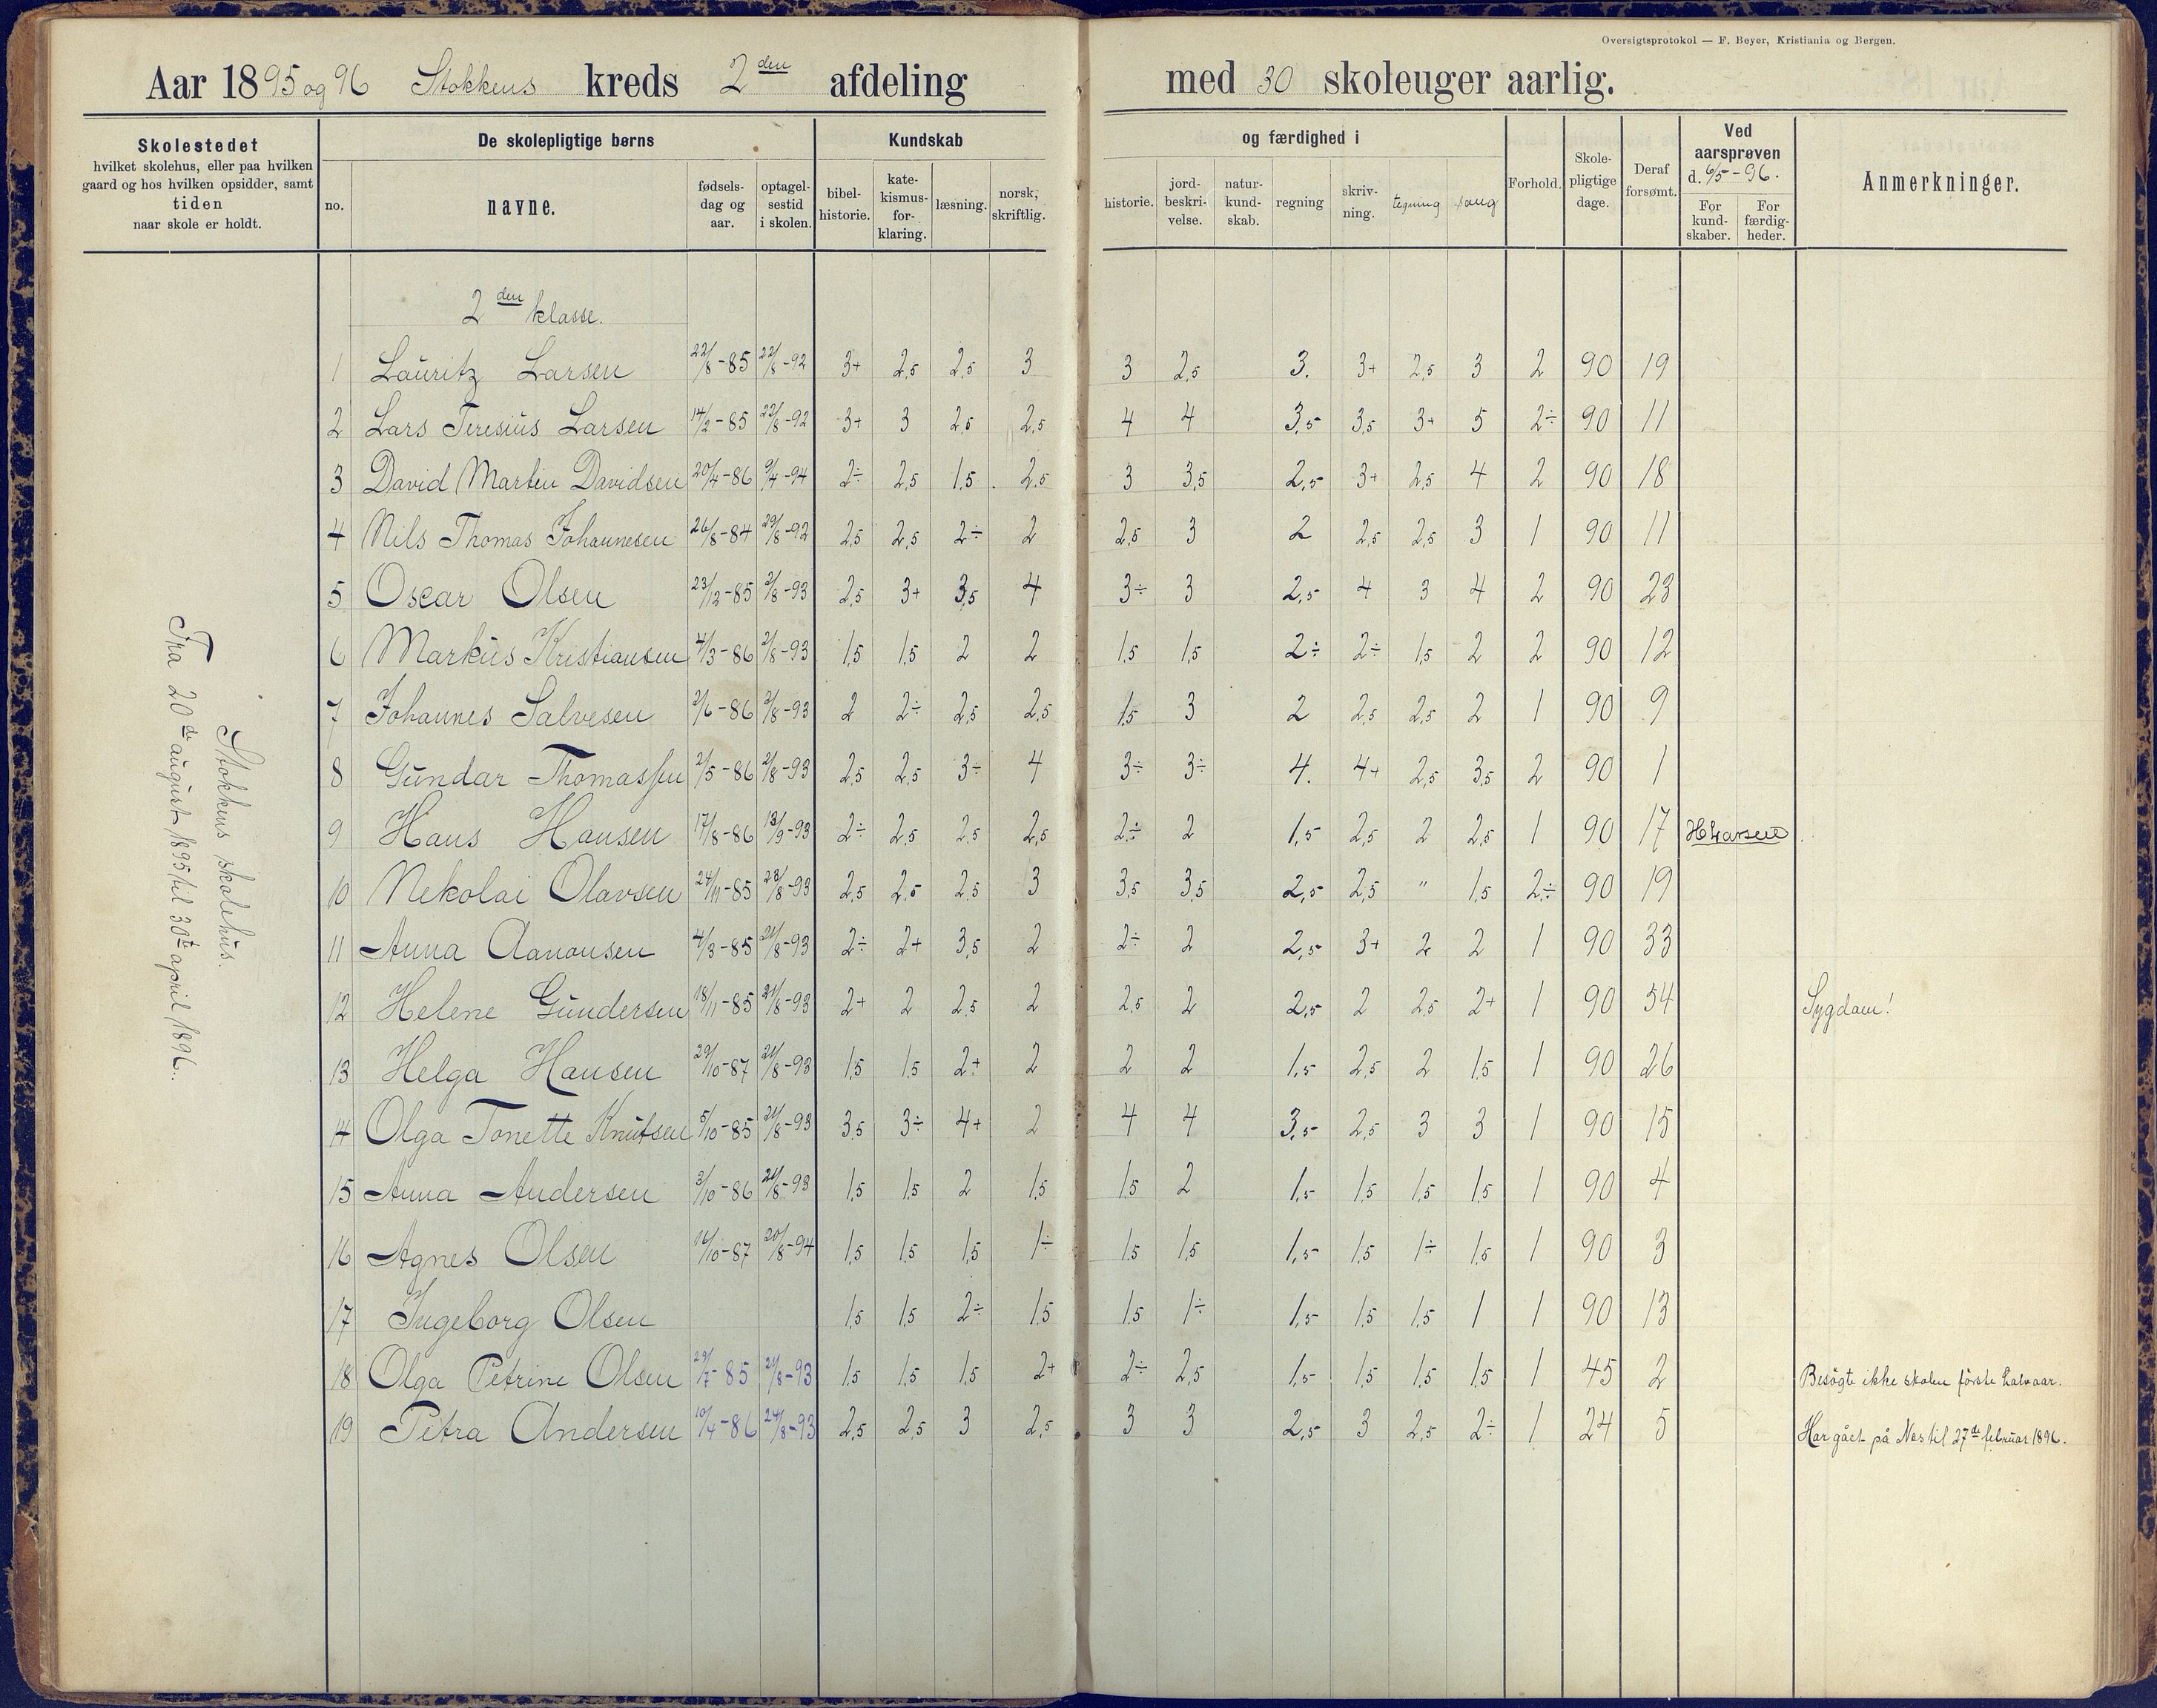 Oversigtsprotokol — F. Beyer, Kristiania og Bergen.
Aar 1895 og 96 Stokkens kreds 2den afdeling med 30 skoleuger aarlig.
Skolestedet
hvilket skolehus, eller paa hvilken
gaard og hos hvilken opsidder, samt
tiden
naar skole er holdt.
De skolepligtige børns
no.
navne.
fødsels-
dag og
aar.
optagel-
sestid
i skolen.
Kundskab
bibel-
historie.
kate-
kismus-
for-
klaring.
læsning.
norsk,
skriftlig.
og færdighed i
historie.
jord-
beskri-
velse.
natur-
kund-
skab.
regning
skriv-
ning.
tegning
sang
Forhold.
Skole-
pligtige
dage.
Deraf
forsømt.
Ved
aarsprøven
d. 6/5-96.
For
kund-
skaber.
For
færdig-
heder.
Anmerkninger.
Stokkens skolehus.
Fra 20de august 1895 til 30te april 1896.
2den klasse.
1 Lauritz Larsen 22/8-85 22/8-92 3+ 2,5 2,5 3 3 2,5 3. 3+ 2,5 3 2 90 19
2 Lars Teresius Larsen 14/2-85 22/8-92 3+ 3 2,5 2,5 4 4 3,5 3,5 3+ 5 2÷ 90 11
3 David Martin Davidsen 20/4-86 9/4-94 2÷ 2,5 1,5 2,5 3 3,5 2,5 3+ 2,5 4 2 90 18
4 Nils Thomas Johannesen 26/8-84 29/8-92 2,5 2,5 2÷ 2 2,5 3 2 2,5 2,5 3 1 90 11
5 Oscar Olsen 23/12-85 2/8-93 2,5 3+ 3,5 4 3÷ 3 2,5 4 3 4 2 90 23
6 Markus Kristiansen 4/3-86 2/8-93 1,5 1,5 2 2 1,5 1,5 2÷ 2÷ 1,5 2 2 90 12
7 Johannes Salvesen 2/6-86 2/8-93 2 2÷ 2,5 2,5 1,5 3 2 2,5 2,5 2 1 90 9
8 Gundar Thomassen 2/5-86 2/8-93 2,5 2,5 3÷ 4 3÷ 3÷ 4. 4+ 2,5 3,5 2 90 1
9 Hans Hansen 17/8-86 13/9-93 2÷ 2,5 2,5 2,5 2÷ 2 1,5 2,5 2 2,5 1 90 17 H Larsen
10 Nekolai Olavsen 24/11-85 23/8-93 2,5 2,5 2,5 3 3,5 3,5 2,5 2,5 " 1,5 2÷ 90 19
11 Anna Aanonsen 4/3-85 21/8-93 2÷ 2+ 3,5 2 2÷ 2 2,5 3+ 2 2 1 90 33
12 Helene Gundersen 18/11-85 21/8-93 2+ 2 2,5 2 2,5 2 2,5 2 2,5 2+ 1 90 54 Sygdom!
13 Helga Hansen 29/10-87 21/8-93 1,5 1,5 2+ 2 2 2 1,5 2,5 2 1,5 1 90 26
14 Olga Tonette Knutsen 5/10-85 21/8-93 3,5 3÷ 4+ 2 4 4 3,5 2,5 3 3 1 90 15
15 Anna Andersen 3/10-86 21/8-93 1,5 1,5 2 1,5 1,5 2 1,5 1,5 1,5 1,5 1 90 4
16 Agnes Olsen 16/10-87 20/8-94 1,5 1,5 1,5 1÷ 1,5 1,5 1,5 1,5 1÷ 1,5 1 90 3
17 Ingeborg Olsen 1,5 1,5 2÷ 1,5 1,5 1÷ 1,5 1,5 1,5 1 1 90 13
18 Olga Petrine Olsen 29/7-85 21/8-93 1,5 1,5 1,5 2+ 2÷ 2,5 1,5 1,5 1,5 1,5 1 45 2 Besøgte ikke skolen første halvaar.
19 Petra Andersen 10/4-86 24/8-93 2,5 2,5 3 2,5 3 3 2,5 3 2,5 2÷ 1 24 5 Har gået på Nes til 27de februar 1896.